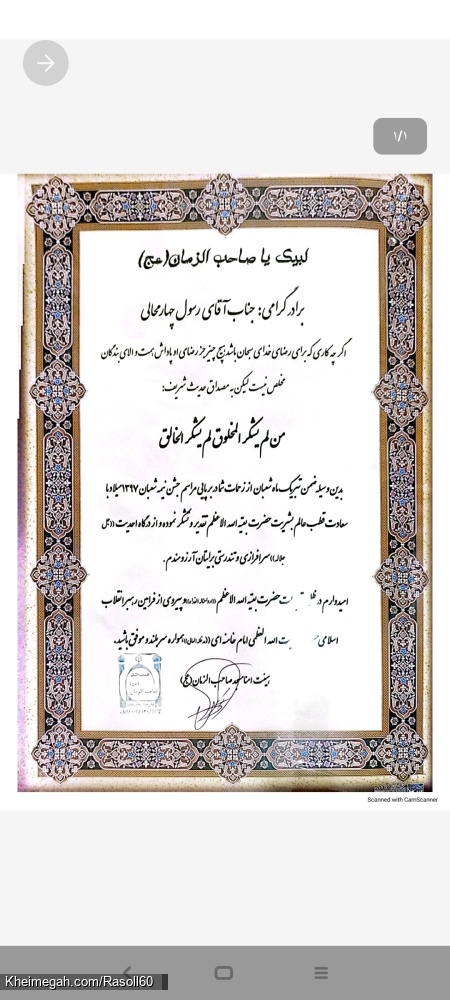 ۱/۱
لبیک یا صاحب الزمان(عج)
برادر گرامی: جناب آقای رسول چهارمحالی
اگر چه کاری که برای رضای خدای سبحان باشد هیچ چیز جز رضای او پاداش همت والای بندگان
مخلص نیست لیکن به مصداق حدیث شریف:
من لم یشکر المخلوق لم یشکر الخالق
بدین وسیله ضمن تبریک ماه شعبان از زحمات شما در برپایی مراسم جشن نیمه شعبان ۱۳۹۷ میلاد با
سعادت قطب عالم بشریت حضرت بقیة الله الاعظم تقدیر و تشکر نموده و از درگاه احدیت ((جل
جلاله)) سرافرازی و تندرستی برایتان آرزومندم.
امیدوارم در حضرت بقیة الله الاعظم و پیروی از فرامین رهبر انقلاب
اسلامی الله العظمی امام خامنه ای همواره سربلند و موفق باشید.
هیئت امنا مسجد صاحب الزمان(عج)
مسجد
صاحب الزمان
Scanned with CamScanner
Kheimegah.com/Rasoll60